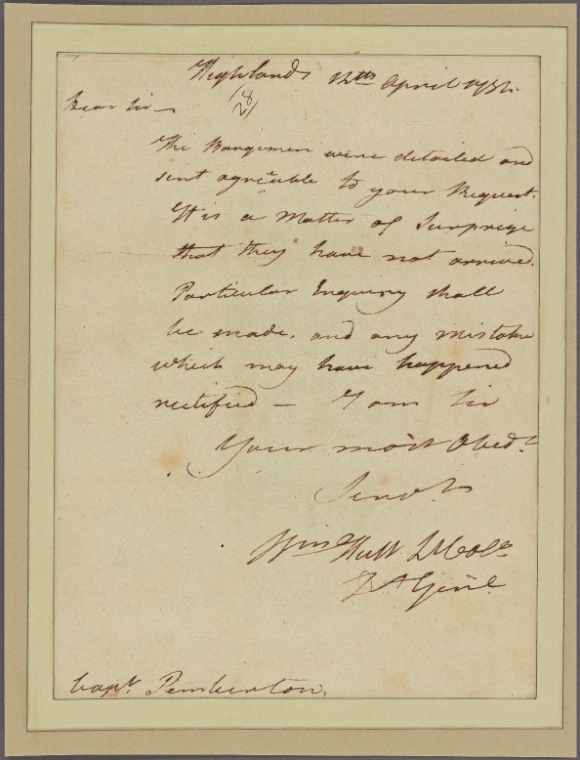 Highlands 12th April 1782.
Dear Sir —
The Bargemen were detailed and
sent agreable to your Request.
It is a Matter of Surprize
that they have not arrived.
Particular Enquiry shall
be made, and any mistake
which may have happened
rectified — I am Sir
Your most Obedt
Servt
Wm Hull Lt Colo
D A Genl
Capt Pemberton.